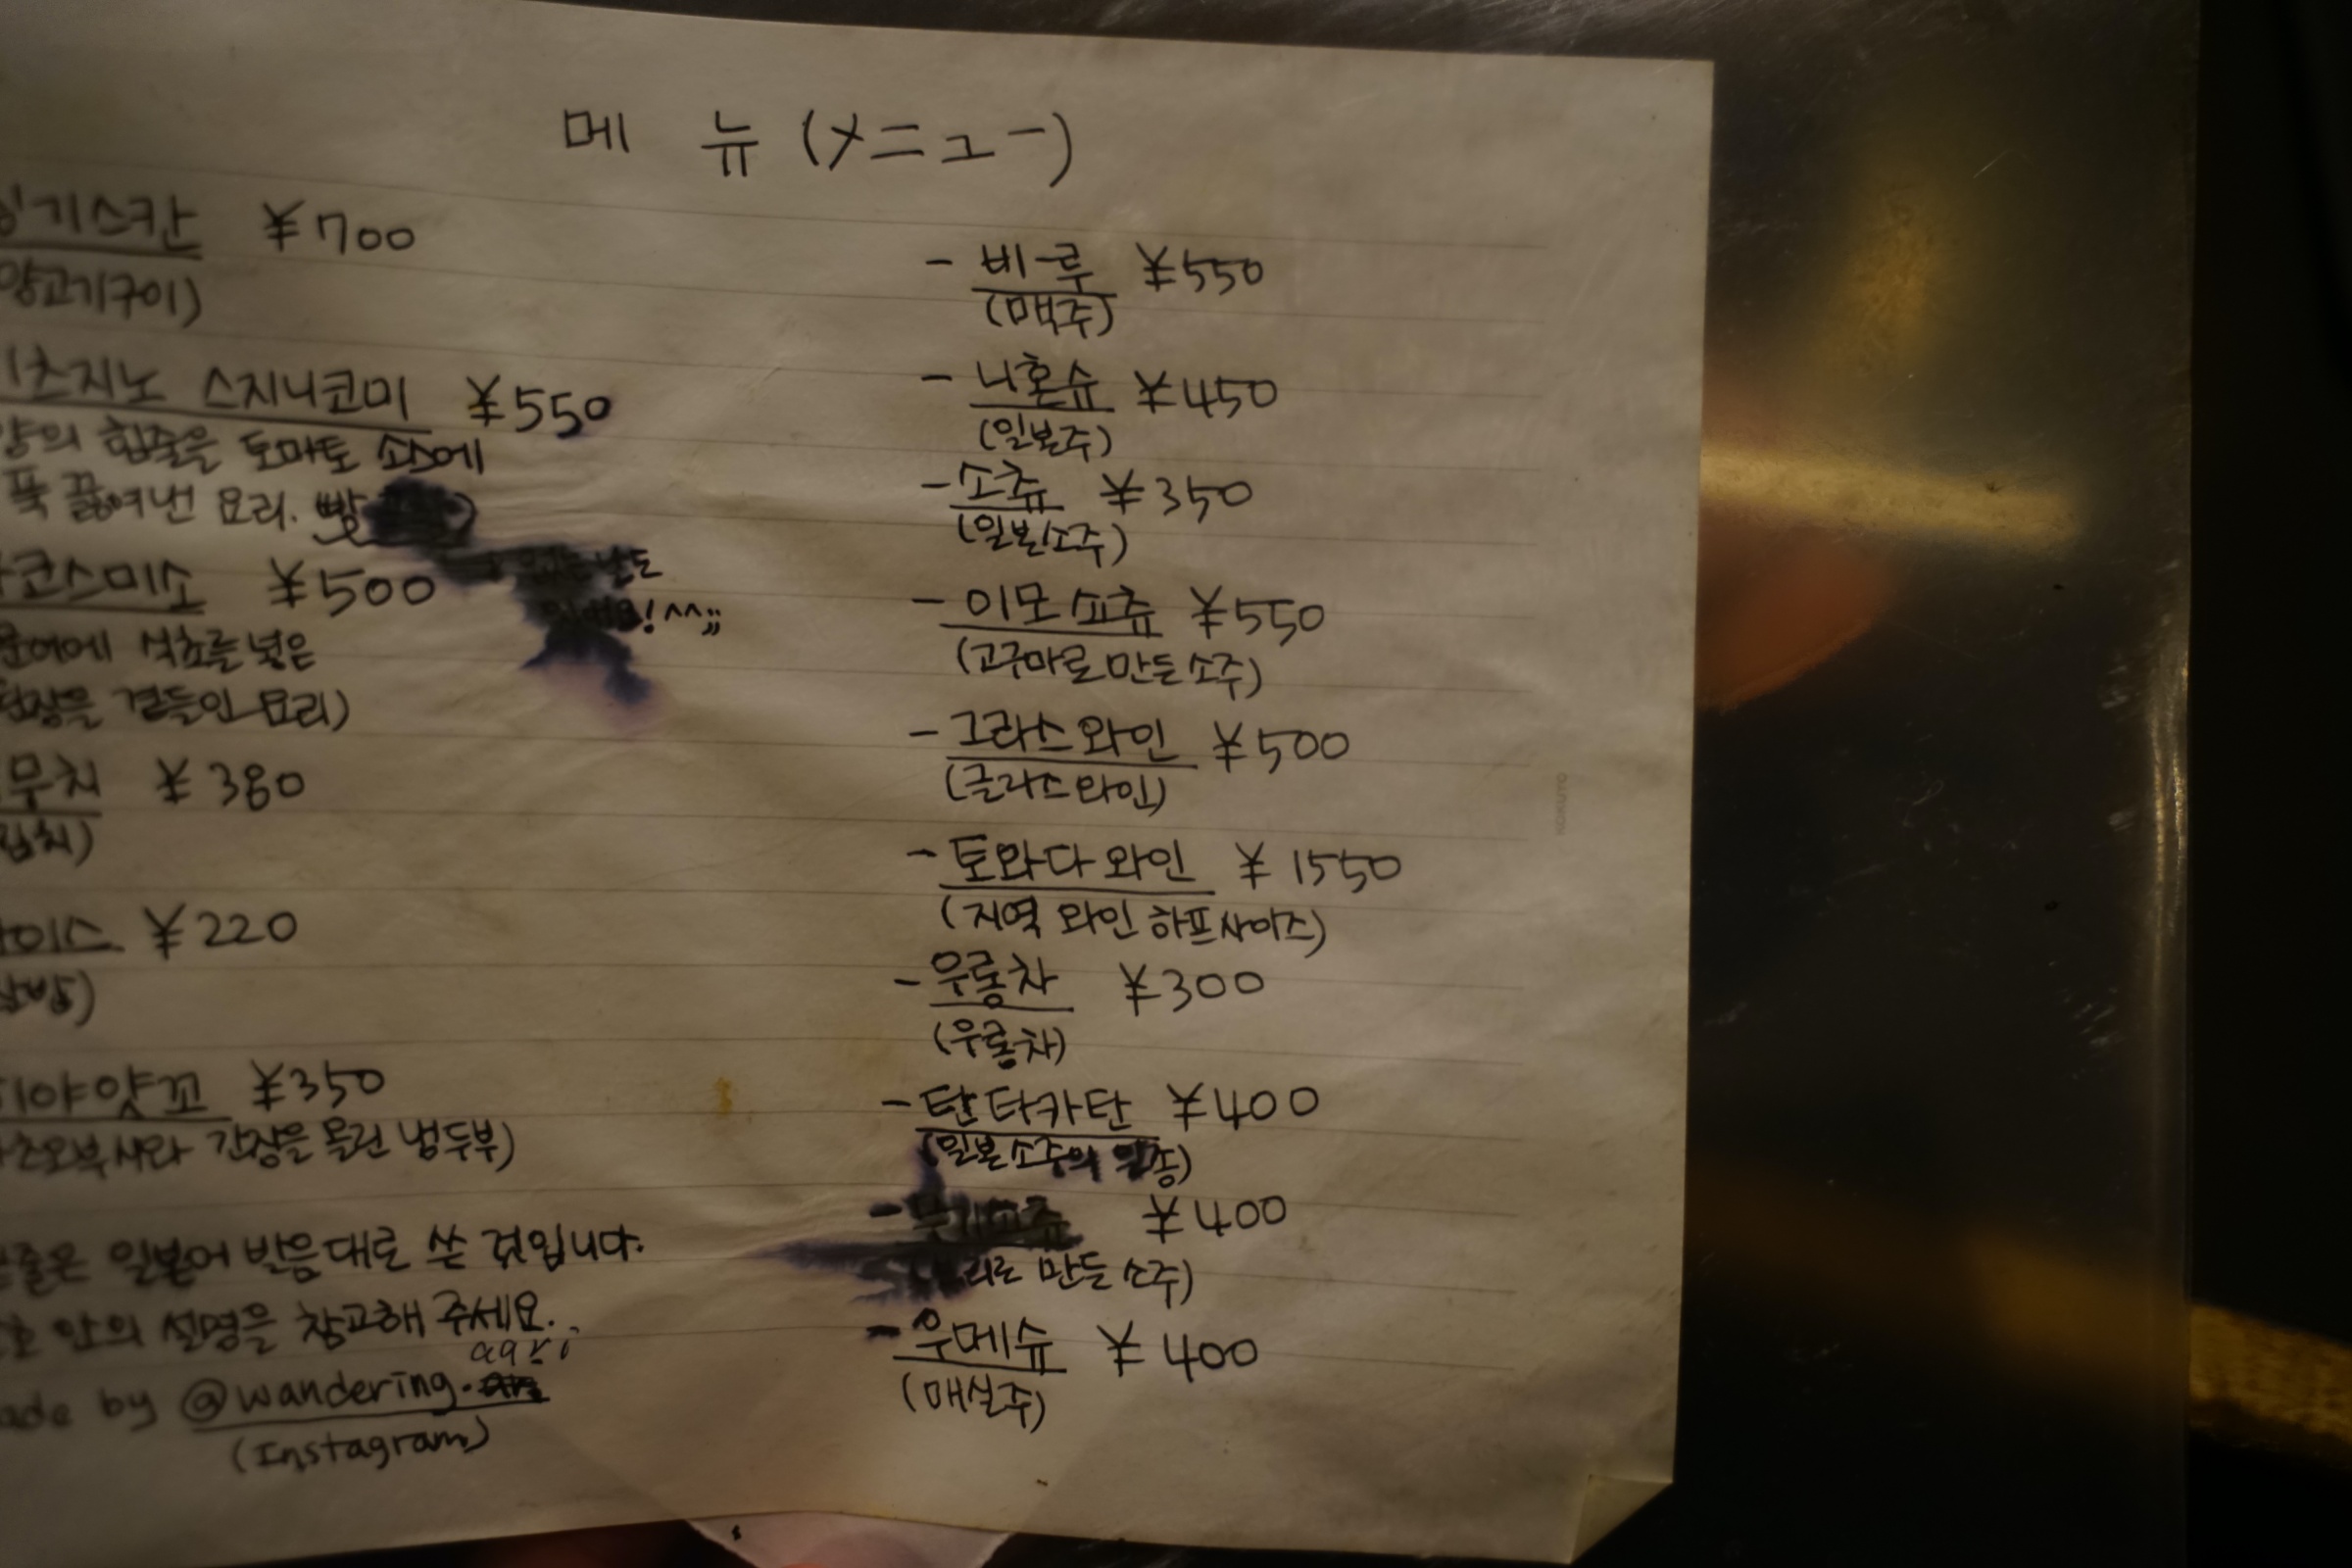 메 뉴 (メニュー)
깅기스칸 ¥700
양고기구이)
츠지노 스지니코미 ¥550
양의 힘줄을 토마토 소스에
푹 끓여낸 요리. 빵
날도
! ^^;;
코스미소 ¥500
문어에 식초를 넣은
된장을 곁들인 요리)
무치 ¥380
김치)
라이스 ¥220
쌀밥)
히야얏꼬 ¥350
가츠오부시와 간장을 올린 냉두부)
밑줄은 일본어 발음대로 쓴 것입니다.
괄호 안의 설명을 참고해 주세요.
agri
made by @wandering.
(Instagram)
- 비-루 ¥550
(맥주)
- 니혼슈 ¥450
(일본주)
- 소츄 ¥350
(일본소주)
- 이모 쇼츄 ¥550
(고구마로 만든 소주)
- 그라스 와인 ¥500
(글라스 와인)
- 토와다 와인 ¥1550
(지역 와인 하프사이즈)
- 우롱차 ¥300
(우롱차)
- 탄타카탄 ¥400
(일본소주의 일종)
- ¥400
리로 만든 소주)
- 우메슈 ¥400
(매실주)
KOKUYO